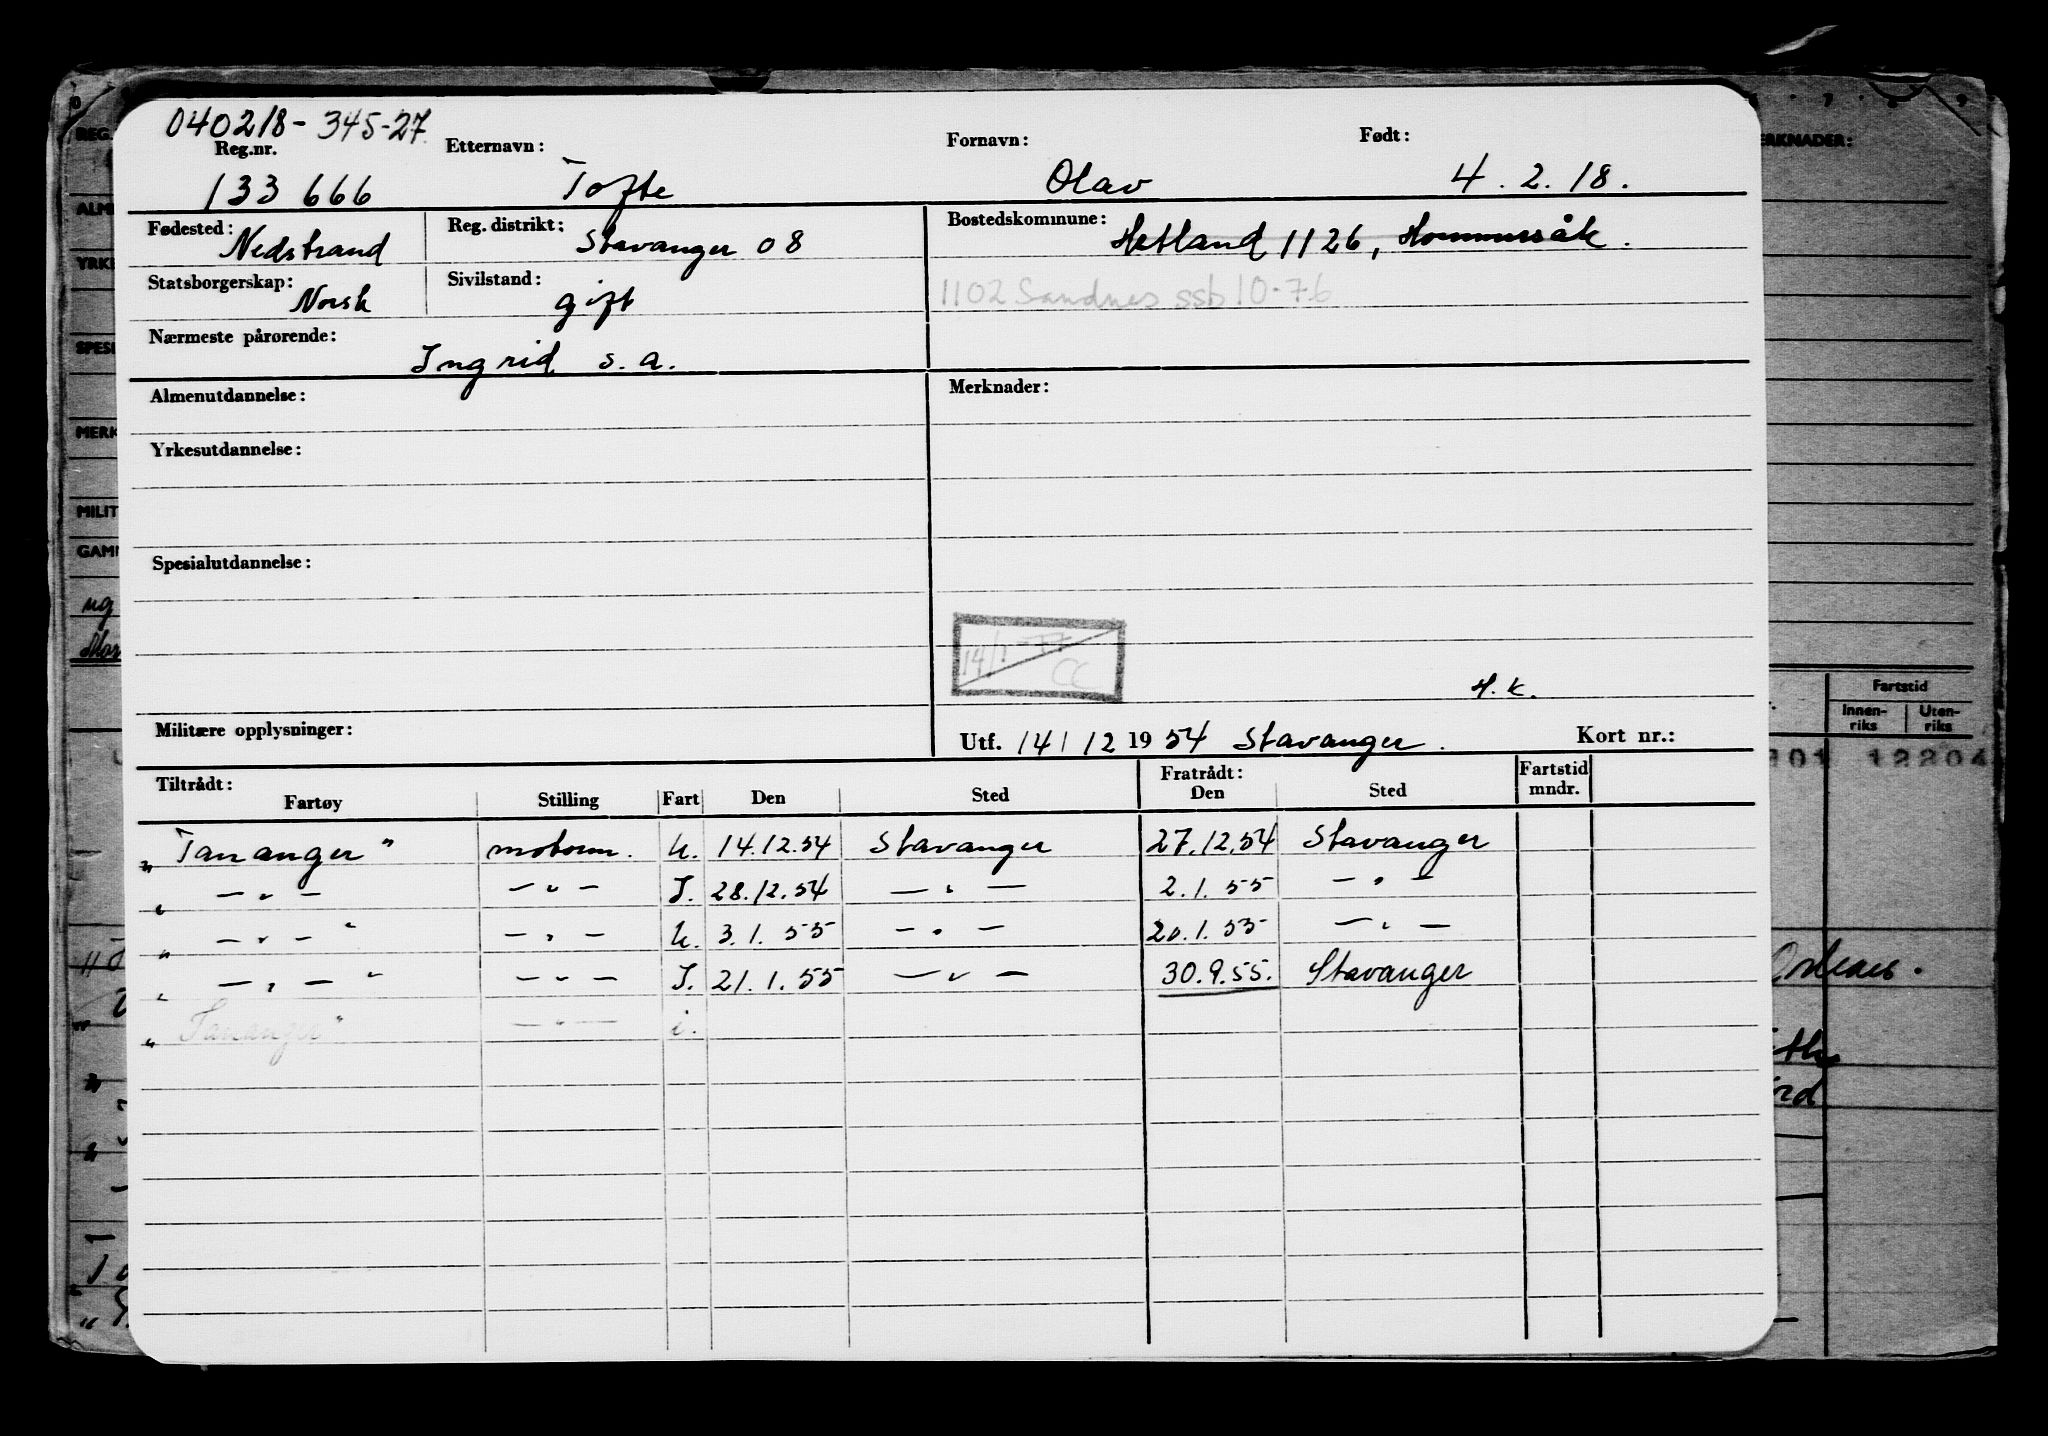 040218-345-27.
Reg.nr. Etternavn: Fornavn: Født:
133 666 Tofte Olav 4.2.18.
Fødested: Nedstrand Reg. distrikt: Stavanger 08 Bostedskommune: Hetland 1126, Hommersåk.
Statsborgerskap: Norsk Sivilstand: gift 1102 Sandnes ssb 10-76
Nærmeste pårørende: Ingrid s.a.
Almenutdannelse: Merknader:
Yrkesutdannelse:
Spesialutdannelse:
14/1-77 CC
H.K.
Militære opplysninger: Utf. 14/12 1954 Stavanger. Kort nr.:
Tiltrådt: Fratrådt: Fartstid
Fartøy Stilling Fart Den Sted Den Sted mndr.
"Tananger" motorm. U. 14.12.54 Stavanger 27.12.54 Stavanger
" — " — — " — I. 28.12.54 — " — 2.1.55 — " —
" — " — " — " — U. 3.1.55 — " — 20.1.55 — " —
" — " — " — " — I. 21.1.55 — " — 30.9.55. Stavanger
" Tananger" — " — i.
REG.
ALM
YRKE
SPESI
MERK
MILIT
GAM
ERKNADER:
Fartstid
Innen-riks Uten-riks
901 12204